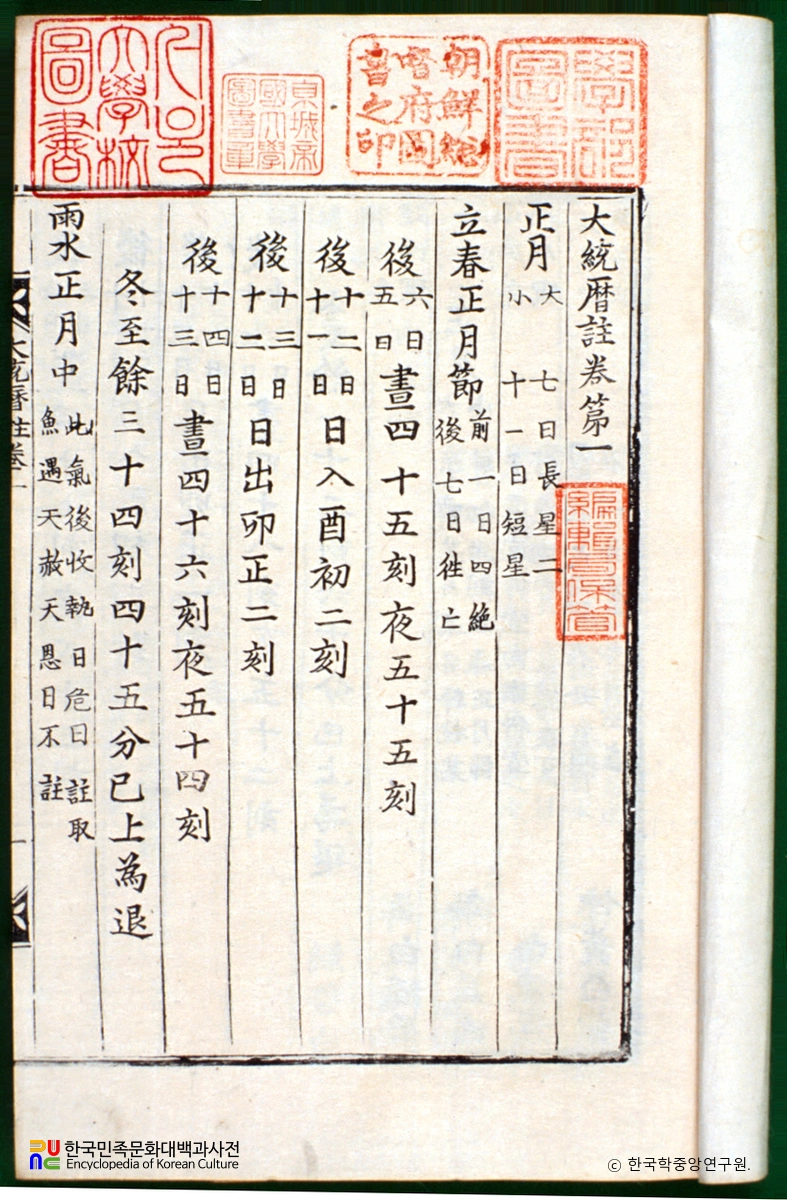 學部圖書
朝鮮總督府圖書之印
京城帝國大學圖書章
서울大學校圖書
大統暦註卷第一
編輯局保管
正月大小 七日長星二
十一日短星
立春正月節 前一日四絶
後七日徃亡
後六日五日晝四十五刻夜五十五刻
後十二日十一日日入酉初二刻
後十三日十二日日出卯正二刻
後十四日十三日晝四十六刻夜五十四刻
冬至餘三十四刻四十五分已上為退
雨水正月中 此氣後收執日危日註取
魚遇天赦天恩日不註
大統暦註卷一
한국민족문화대백과사전
Encyclopedia of Korean Culture
© 한국학중앙연구원.